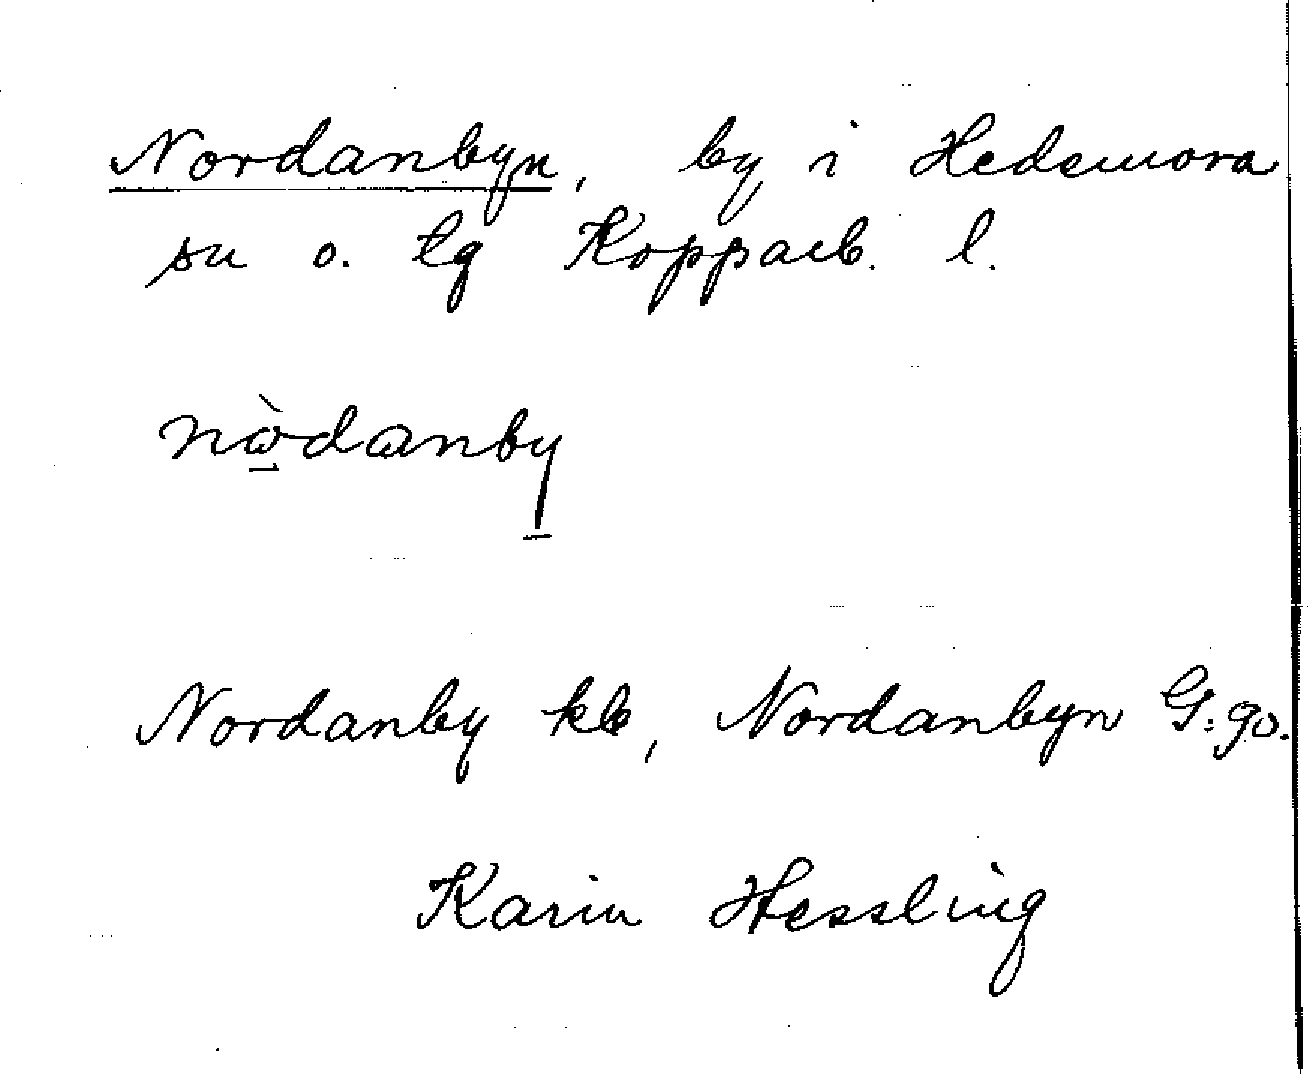 Nordanbyn, by i Hedemora
sn o. tg Kopparb. l.
nò̠danby̠
Nordanby kb, Nordanbyn G:go.
Karin Hessling